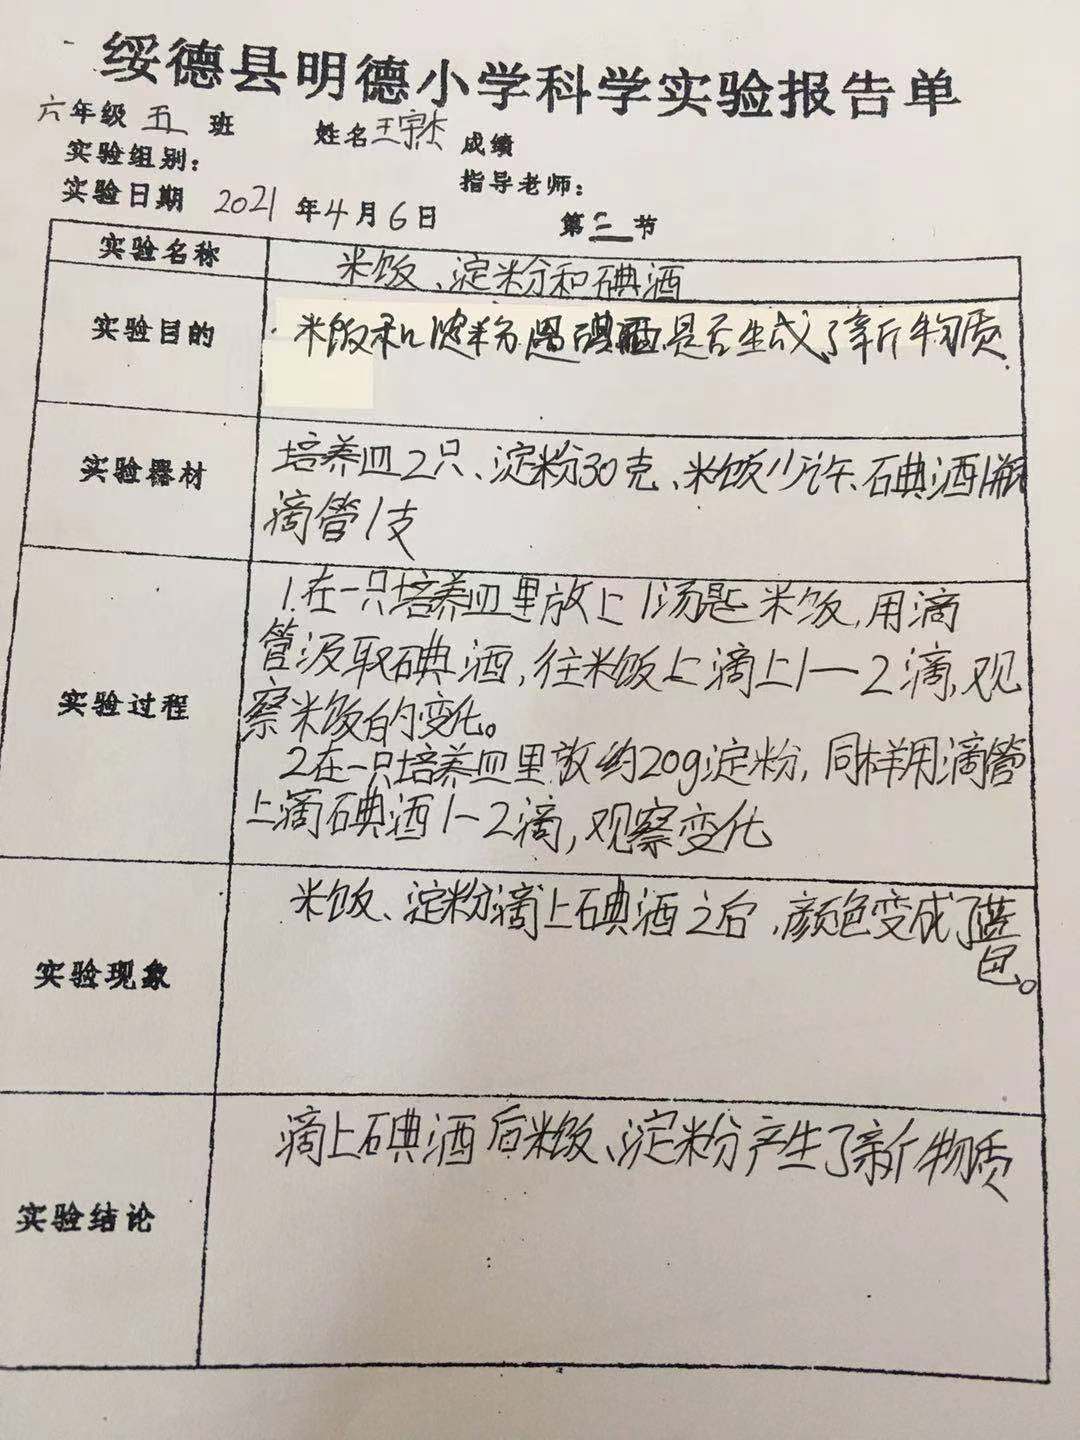 绥德县明德小学科学实验报告单
六年级 五 班 姓名 王宇杰 成绩
实验组别： 指导老师：
实验日期 2021 年 4 月 6 日 第 二 节
实验名称 米饭、淀粉和碘酒
实验目的 米饭和淀粉遇碘酒是否生成了新物质
实验器材 培养皿2只、淀粉30克、米饭少许、碘酒1瓶
滴管1支
实验过程 1.在一只培养皿里放上1汤匙米饭,用滴
管汲取碘酒,往米饭上滴上1—2滴,观
察米饭的变化。
2在一只培养皿里放约20g淀粉,同样用滴管
上滴碘酒1—2滴,观察变化
实验现象 米饭、淀粉滴上碘酒之后,颜色变成了蓝
色。
实验结论 滴上碘酒后米饭、淀粉产生了新物质